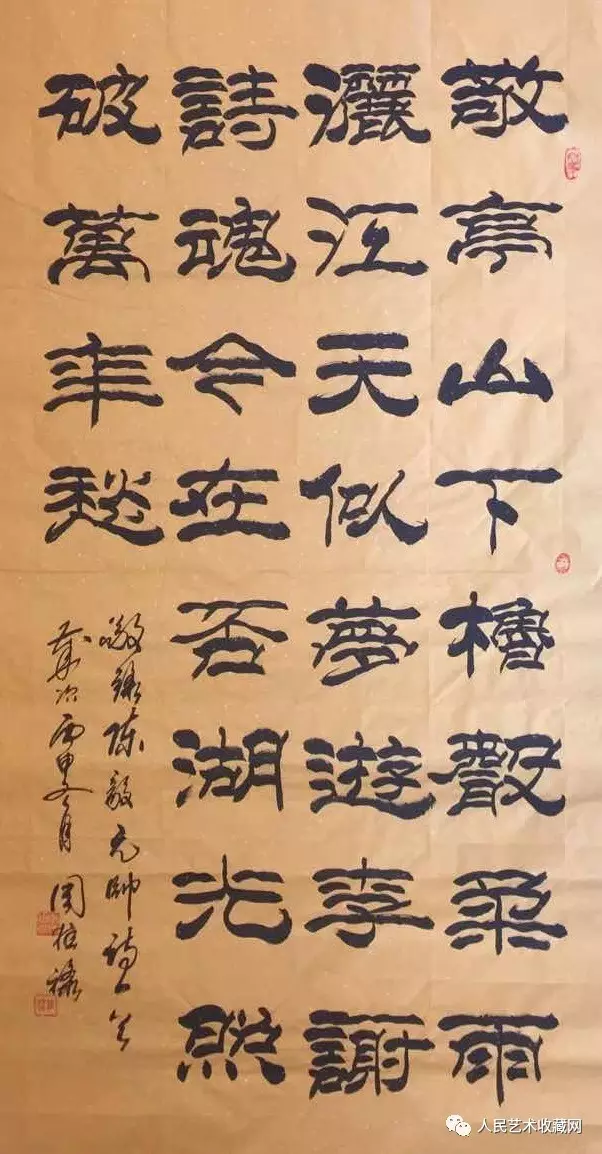 敬亭山下櫓聲柔雨
灑江天似夢遊李謝
詩魂今在否湖光照
破萬年愁
敬録陈毅元帅詩一首
歲次丙申月周
人民艺术收藏网